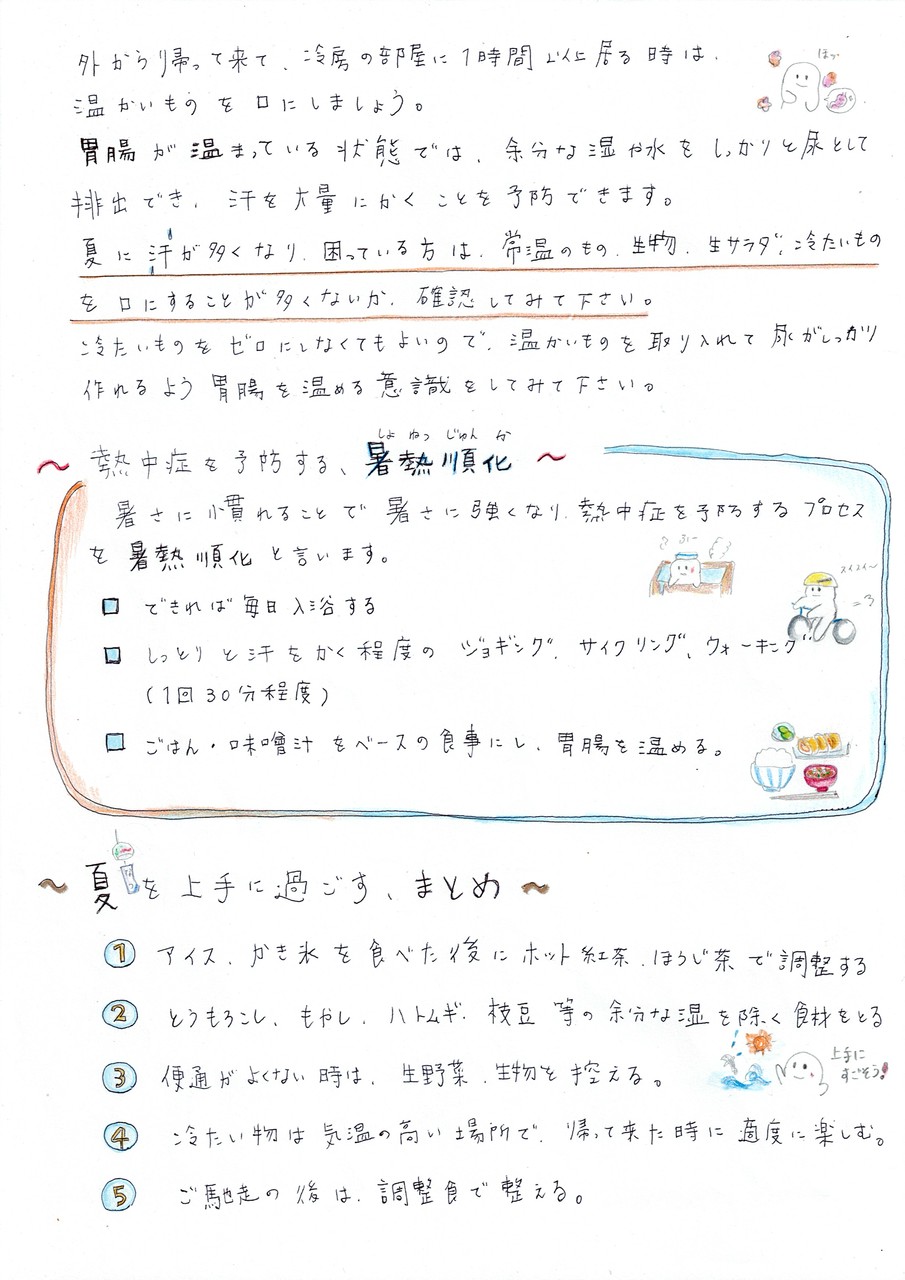 外から帰って来て、冷房の部屋に1時間以上居る時は、
ほっ
温かいものを口にしましょう。
胃腸が温まっている状態では、余分な湿や水をしっかりと尿として
排出でき、汗を大量にかくことを予防できます。
夏に汗が多くなり、困っている方は、常温のもの、生物、生サラダ、冷たいもの
を口にすることが多くないか、確認してみて下さい。
冷たいものをゼロにしなくてもよいので、温かいものを取り入れて尿がしっかり
作れるよう胃腸を温める意識をしてみて下さい。
しょねつじゅんか
～熱中症を予防する、暑熱順化～
暑さに慣れることで暑さに強くなり、熱中症を予防するプロセス
を暑熱順化と言います。
スイスイ～
できれば毎日入浴する
しっとりと汗をかく程度のジョギング、サイクリング、ウォーキング
(1回30分程度)
ごはん・味噌汁をベースの食事にし、胃腸を温める。
～夏を上手に過ごす、まとめ～
① アイス、かき氷を食べた後にホット紅茶、ほうじ茶で調整する
② とうもろこし、もやし、ハトムギ、枝豆等の余分な湿を除く食材をとる
③ 便通がよくない時は、生野菜、生物を控える。
上手に
すごそう!
④ 冷たい物は気温の高い場所で、帰って来た時に適度に楽しむ。
⑤ ご馳走の後は、調整食で整える。